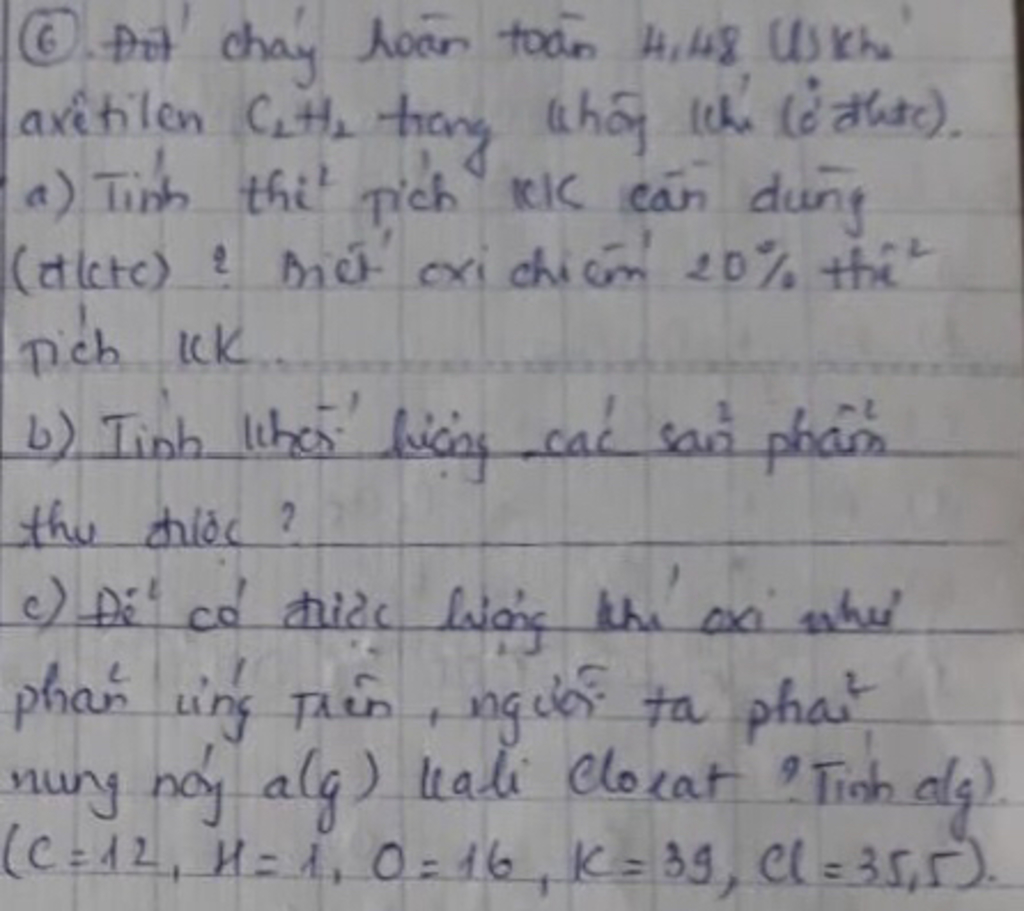 ⑥. Đốt cháy hoàn toàn 4,48 (l) khí
axêtilen C₂H₂ trong không khí (ở đktc).
a) Tính thể tích KK cần dùng
(đktc) ? Biết oxi chiếm 20% thể
tích KK.
b) Tính khối lượng các sản phẩm
thu được ?
c) Để có được lượng khí oxi như
phản ứng trên, người ta phải
nung nóng a(g) kali Clorat ? Tính a(g).
(C = 12, H = 1, O = 16, K = 39, Cl = 35,5).